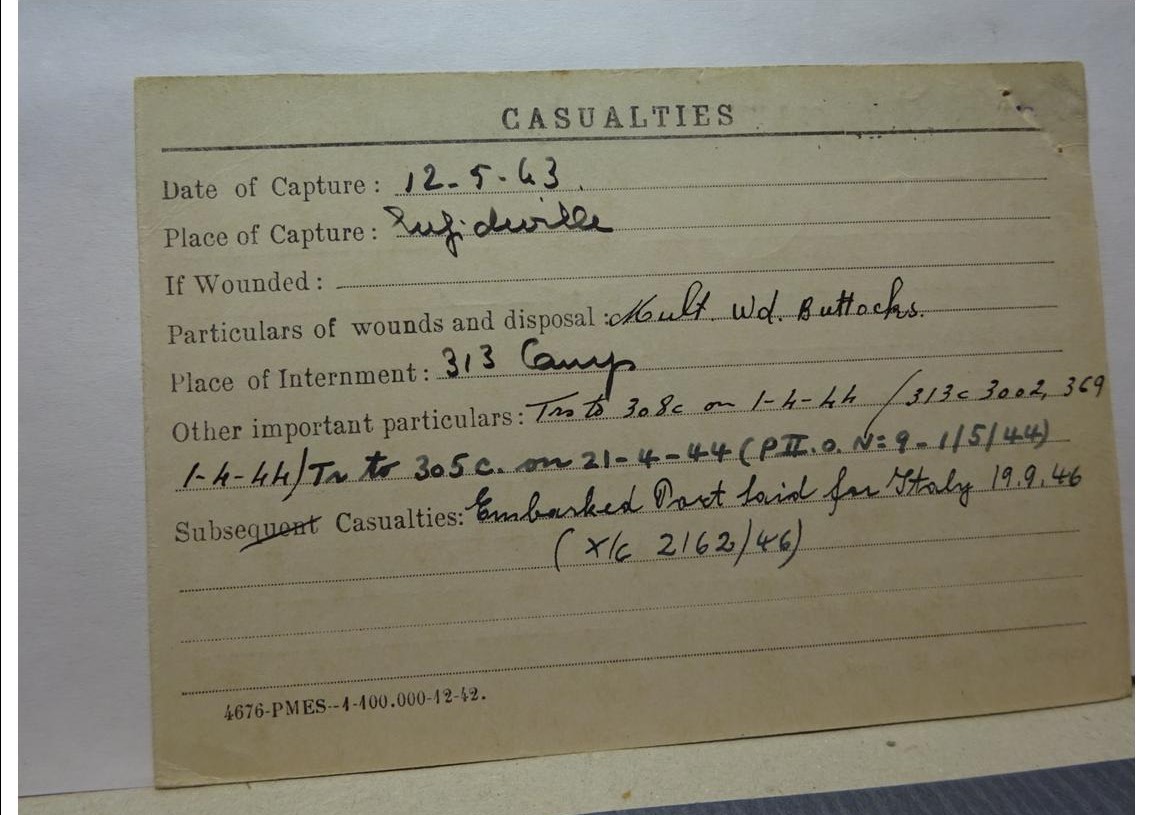 CASUALTIES
Date of Capture: 12-5-43.
Place of Capture:
If Wounded:
Particulars of wounds and disposal: Mult. Wd. Buttocks.
Place of Internment: 313 Camp
Other important particulars: Trs to 308c on 1-4-44 / 313c 3002, 369
1-4-44) Tr to 305c. on 21-4-44 (PII.O. N=9-1/5/44)
Subsequent Casualties: Embarked Port Said for Italy 19.9.46
(X/c 2162/46)
4676-PMES--1-100.000-12-42.